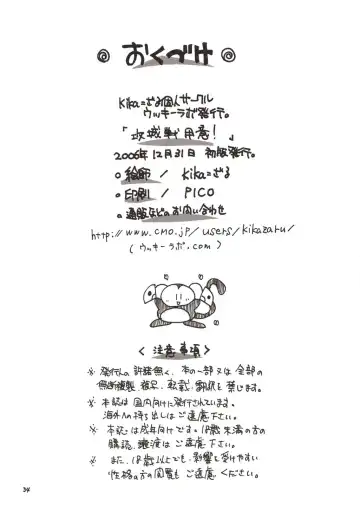 おくづけ
kika=ざる個人サークル
ウッキーラボ発行。
「攻城戦用意!」
2006年12月31日 初版発行。
絵師 / kika=ざる
印刷 / PICO
通販などのお問い合わせ
http://www.cmo.jp/users/kikazaru/
(ウッキーラボ.com)
<注意事項>
※ 発行人の許諾無く、本の一部又は全部の
無断複製、複写、転載、翻訳を禁じます。
※ 本誌は国内向けに発行されています。
海外への持ち出しはご遠慮下さい。
※ 本誌は成年向けです。18歳未満の方の
購読、譲渡はご遠慮下さい。
※ また、18歳以上でも、影響を受けやすい
性格の方の閲覧もご遠慮ください。
34